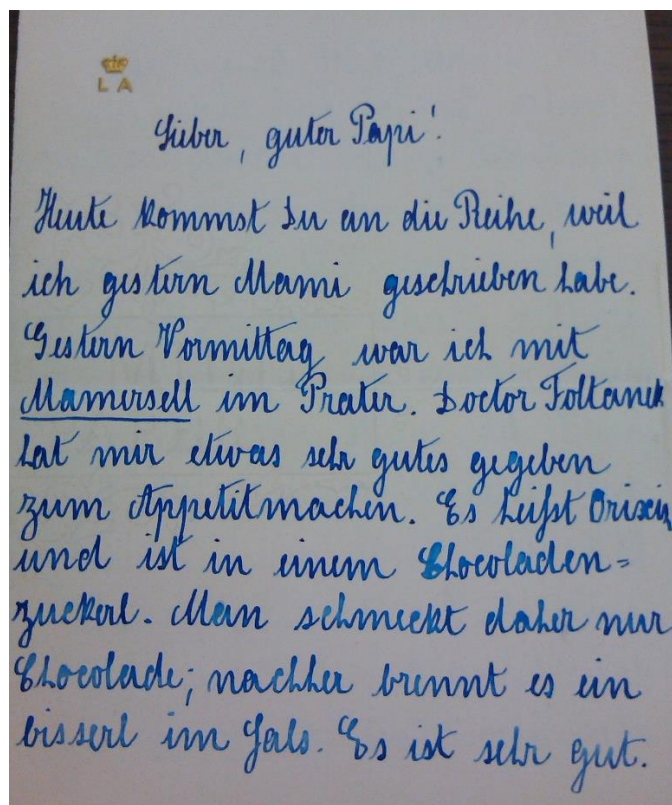 L A
Lieber, guter Papi!
Heute kommst Du an die Reihe, weil
ich gestern Mami geschrieben habe.
Gestern Vormittag war ich mit
Mamersell im Prater. Doctor Foltanek
hat mir etwas sehr gutes gegeben
zum Appetitmachen. Es heißt Orixin
und ist in einem Chocoladen=
zuckerl. Man schmeckt daher nur
Chocolade; nachher brennt es ein
bisserl im Hals. Es ist sehr gut.